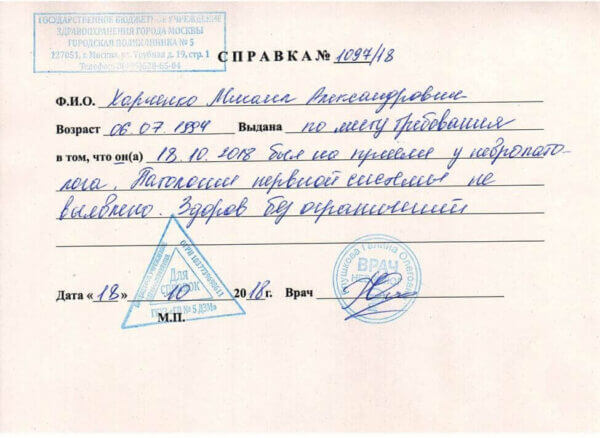 ГОСУДАРСТВЕННОЕ БЮДЖЕТНОЕ УЧРЕЖДЕНИЕ
ЗДРАВООХРАНЕНИЯ ГОРОДА МОСКВЫ
ГОРОДСКАЯ ПОЛИКЛИНИКА № 5
127051, г. Москва, ул. Трубная д. 19, стр. 1
Телефон 8(495)628-65-04
СПРАВКА № 1097/18
Ф.И.О. Харченко Михаил Александрович
Возраст 06.07.1994 Выдана по месту требования
в том, что он(а) 18.10.2018 был на приёме у невропато-
лога. Патологии нервной системы не
выявлено. Здоров без ограничений
Для
справок
ОГРН
ГБУЗ «ГП № 5 ДЗМ»
Галина Олеговна
ВРАЧ
Дата «18» 10 2018 г. Врач
М.П.